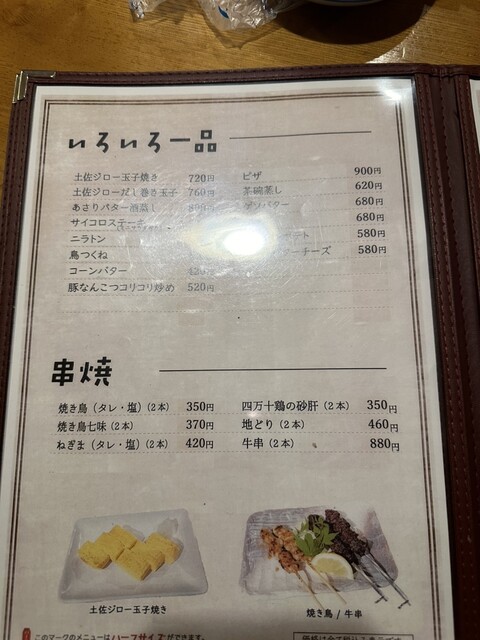 いろいろ一品
土佐ジロー玉子焼き 720円
土佐ジローだし巻き玉子 760円
あさりバター酒蒸し
サイコロステーキ
ニラトン
鳥つくね
コーンバター 420
豚なんこつコリコリ炒め 520円
ピザ 900円
茶碗蒸し 620円
680円
680円
580円
チーズ 580円
串焼
焼き鳥（タレ・塩）（2本） 350円
焼き鳥七味（2本） 370円
ねぎま（タレ・塩）（2本） 420円
四万十鶏の砂肝（2本） 350円
地どり（2本） 460円
牛串（2本） 880円
土佐ジロー玉子焼き
焼き鳥 / 牛串
このマークのメニューはハーフサイズができます。